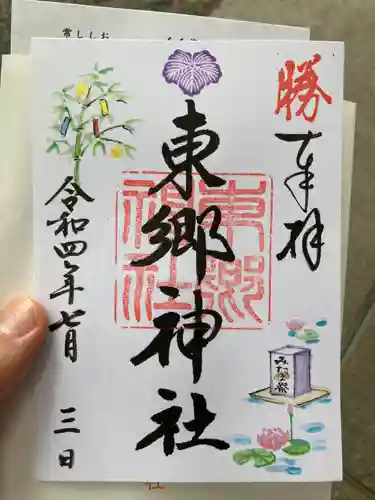 勝
奉拝
東郷神社
東郷神社
みたま祭
令和四年七月三日